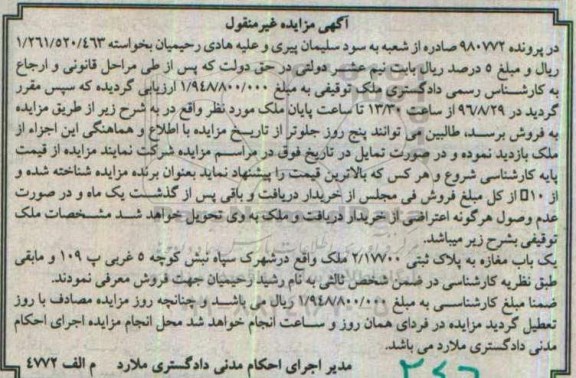 آگهی مزایده غیرمنقول
در پرونده ۹۸۰۷۷۲ صادره از شعبه به سود سلیمان پیری و علیه هادی رحیمیان بخواسته ۱/۲۶۱/۵۲۰/۴۶۳
ریال و مبلغ ۵ درصد ریال بابت نیم عشر دولتی در حق دولت که پس از طی مراحل قانونی و ارجاع
به کارشناس رسمی دادگستری ملک توقیفی به مبلغ ۱/۹۴۸/۸۰۰/۰۰۰ ارزیابی گردیده که سپس مقرر
گردید در ۹۶/۸/۲۹ از ساعت ۱۳/۳۰ تا ساعت پایان ملک مورد نظر واقع در به شرح زیر از طریق مزایده
به فروش برسد، طالبین می توانند پنج روز جلوتر از تاریخ مزایده با اطلاع و هماهنگی این اجراء از
ملک بازدید نموده و در صورت تمایل در تاریخ فوق در مراسم مزایده شرکت نمایند مزایده از قیمت
پایه کارشناسی شروع و هر کس که بالاترین قیمت را پیشنهاد نماید بعنوان برنده مزایده شناخته شده و
از ۱۰□ از کل مبلغ فروش فی مجلس از خریدار دریافت و باقی پس از گذشت یک ماه و در صورت
عدم وصول هرگونه اعتراضی از خریدار دریافت و ملک به وی تحویل خواهد شد مشخصات ملک
توقیفی بشرح زیر میباشد.
یک باب مغازه به پلاک ثبتی ۲/۱۷۷۰۰ ملک واقع درشهرک سپاه نبش کوچه ۵ غربی پ ۱۰۹ و مابقی
طبق نظریه کارشناسی در ضمن شخص ثالثی به نام رشید رحیمیان جهت فروش معرفی نمودند.
ضمنا مبلغ کارشناسی به مبلغ ۱/۹۴۸/۸۰۰/۰۰۰ ریال می باشد و چنانچه روز مزایده مصادف با روز
تعطیل گردید مزایده در فردای همان روز و ساعت انجام خواهد شد محل انجام مزایده اجرای احکام
مدنی دادگستری ملارد می باشد.
مدیر اجرای احکام مدنی دادگستری ملارد م الف ۴۷۷۲